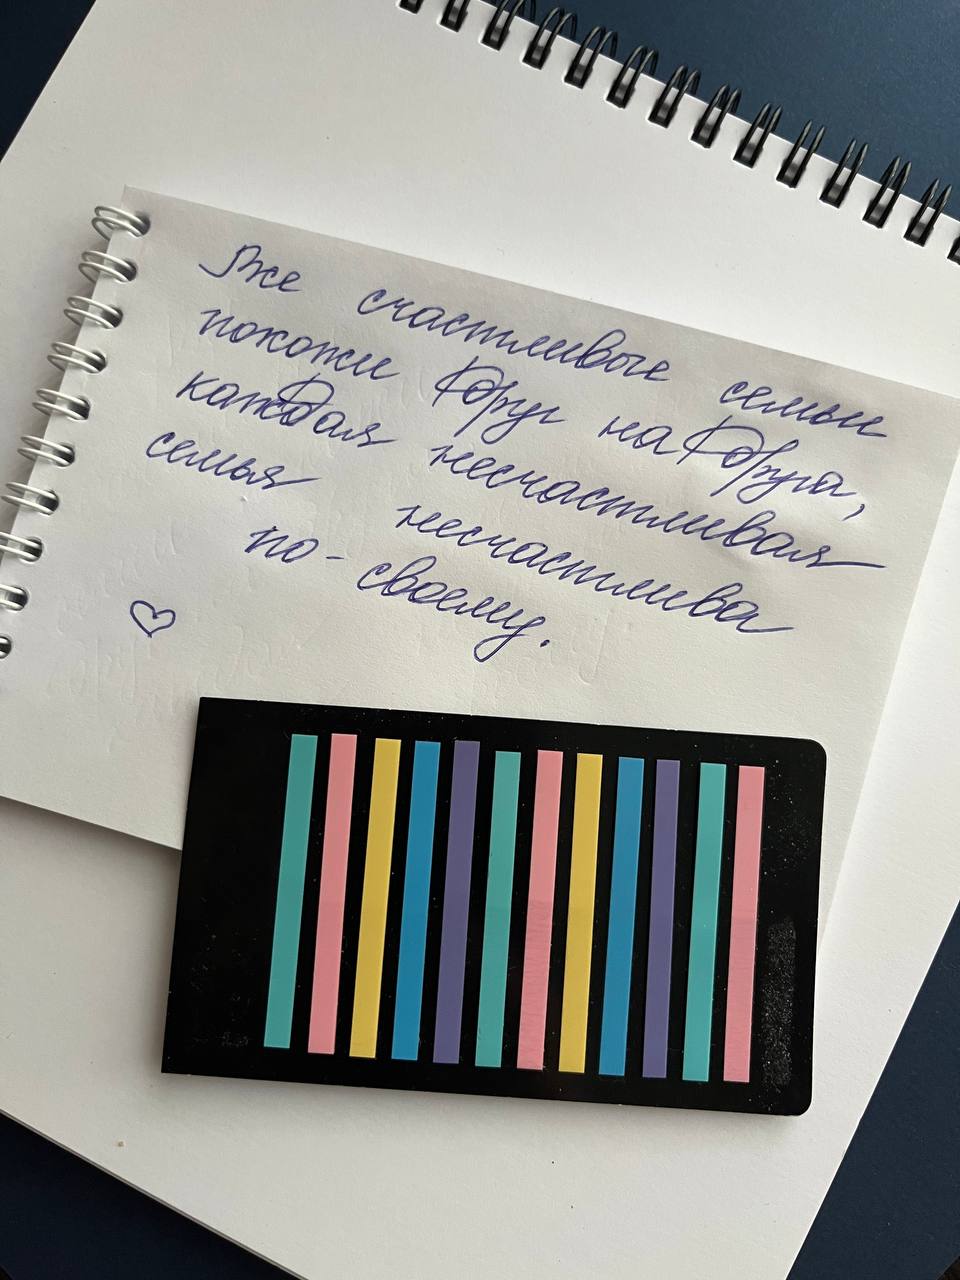 Все счастливые семьи
похожи друг на друга,
каждая несчастливая
семья несчастлива
по-своему.